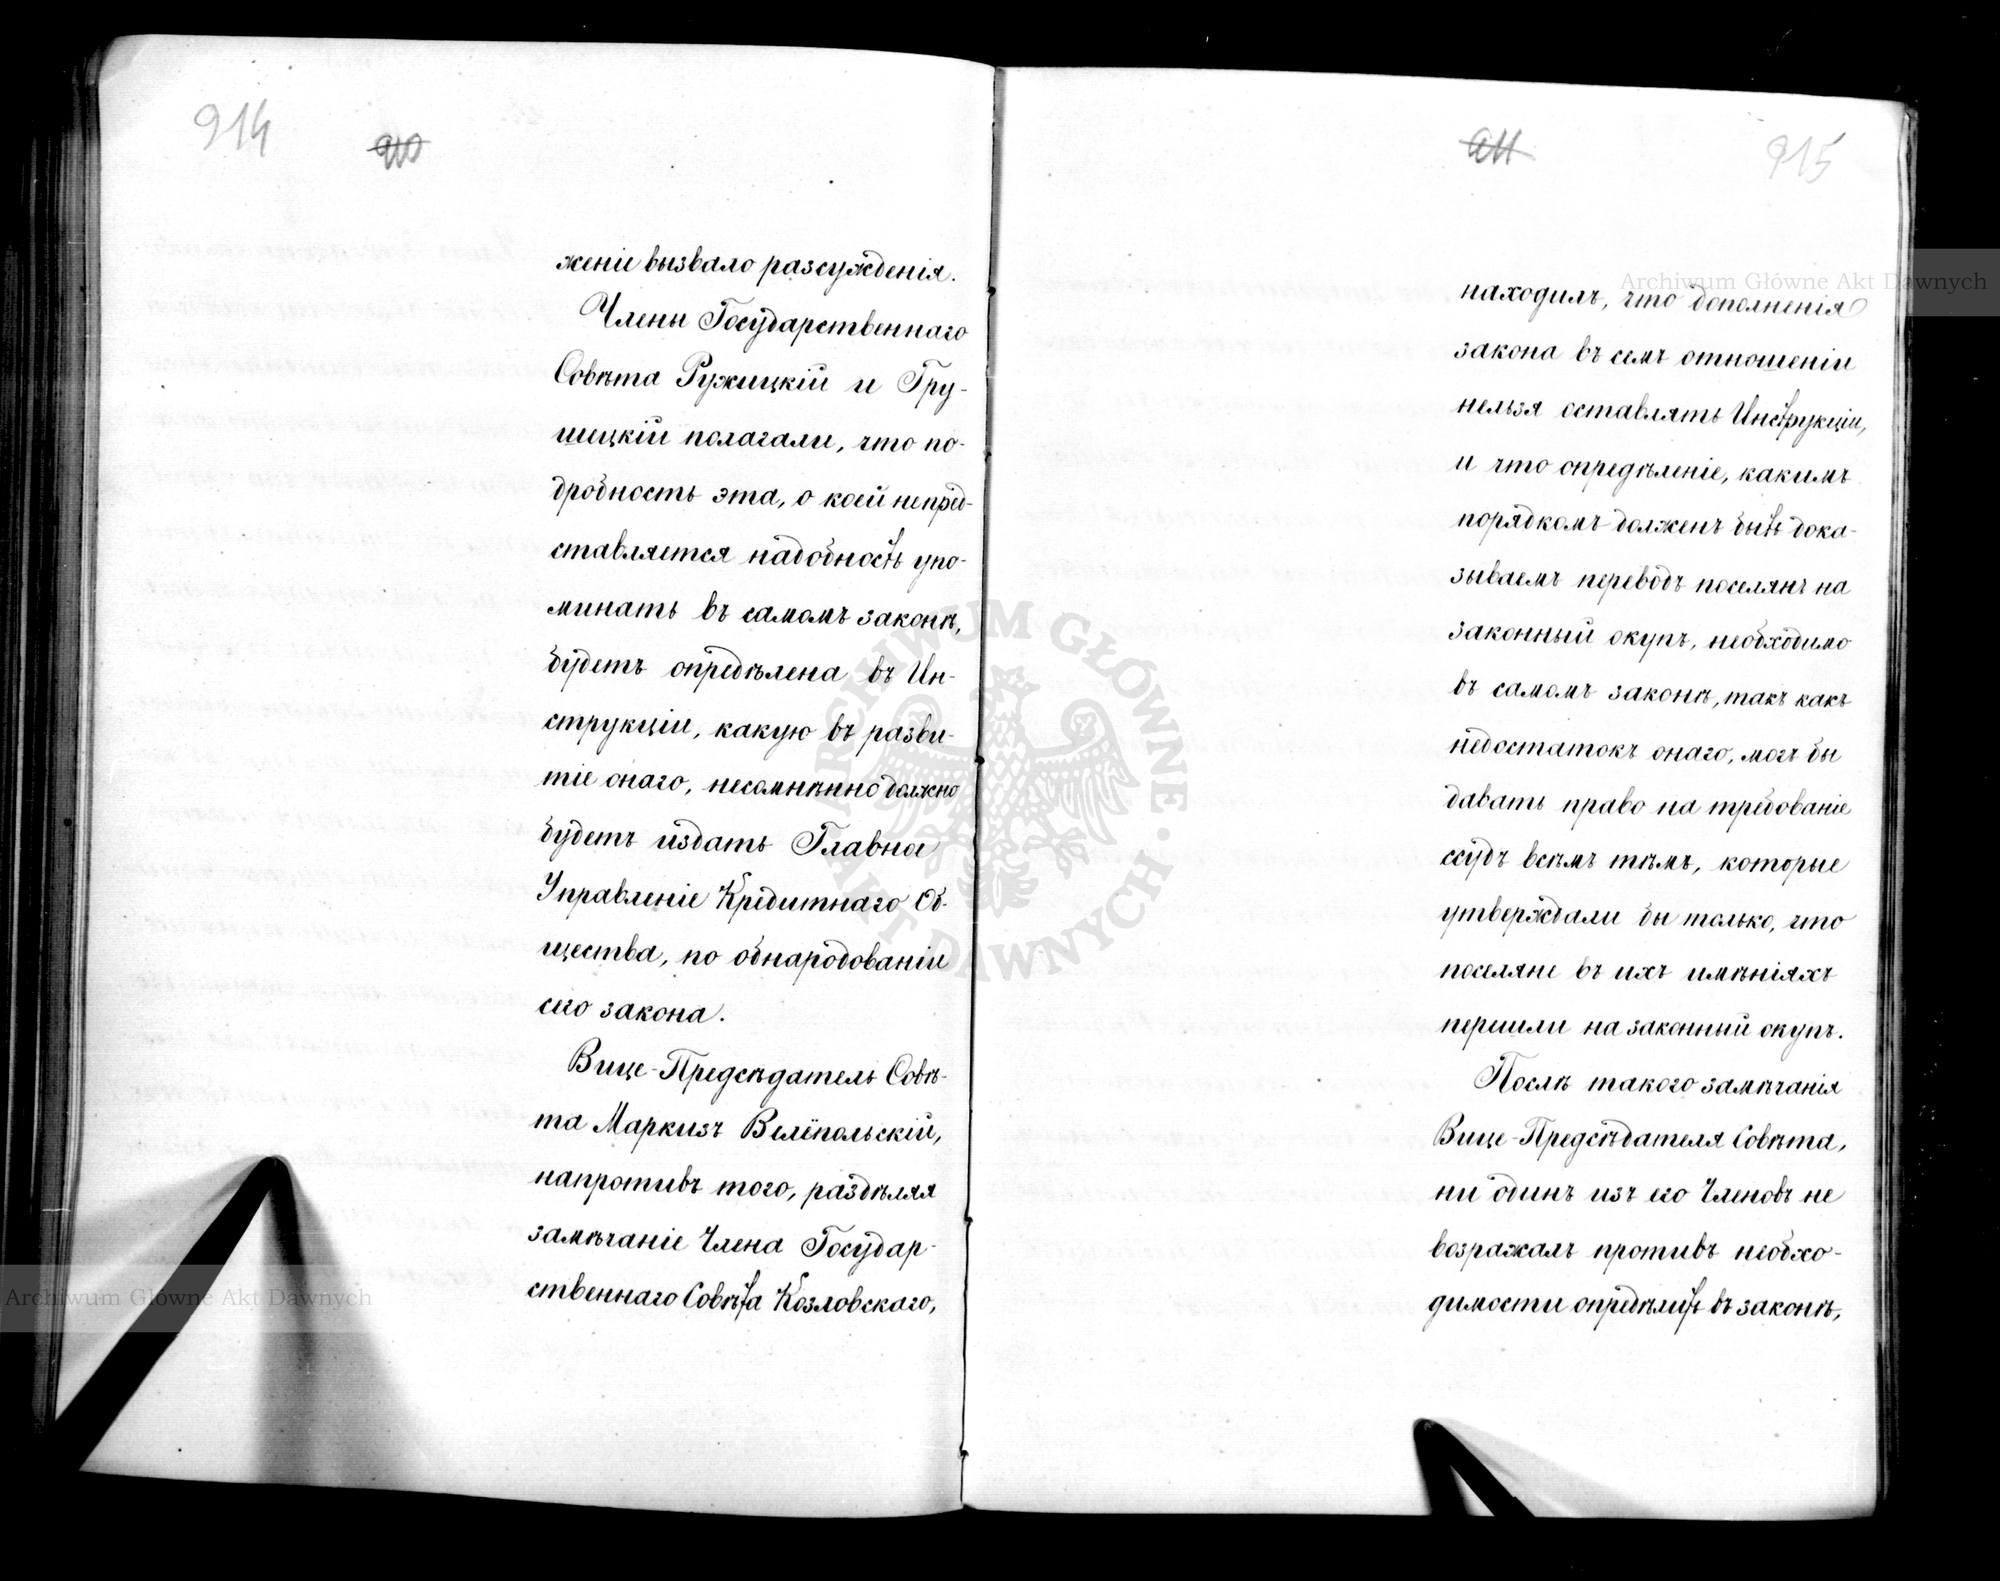 914
910
женіе вызвало разсужденія.
Члены Государственнаго
Совѣта Ружицкій и Гру-
шецкій полагали, что по-
дробность эта, о коей непред-
ставляется надобность упо-
минать въ самомъ законѣ,
будетъ опредѣлена въ Ин-
струкціи, какую въ разви-
тіе онаго, несомнѣнно должно
будетъ издать Главное
Управленіе Кредитнаго Об-
щества, по обнародованіи
сего закона.
Вице-Предсѣдатель Совѣ-
та Маркизъ Велёпольскій,
напротивъ того, раздѣляя
замѣчаніе Члена Государ-
ственнаго Совѣта Козловскаго,
911
915
находилъ, что дополненія
закона въ семъ отношеніи
нельзя оставлять Инструкціи,
и что опредѣленіе, какимъ
порядкомъ долженъ быть дока-
зываемъ переводъ поселянъ на
законный окупъ, необходимо
въ самомъ законѣ, такъ какъ
недостатокъ онаго, могъ бы
давать право на требованіе
ссудъ всѣмъ тѣмъ, которые
утверждали бы только, что
поселяне въ ихъ имѣніяхъ
перешли на законный окупъ.
Послѣ такого замѣчанія
Вице-Предсѣдателя Совѣта,
ни одинъ изъ его Членовъ не
возражалъ противъ необхо-
димости опредѣлить въ законѣ,
Archiwum Główne Akt Dawnych
Archiwum Główne Akt Dawnych
ARCHIWUM GŁÓWNE AKT DAWNYCH